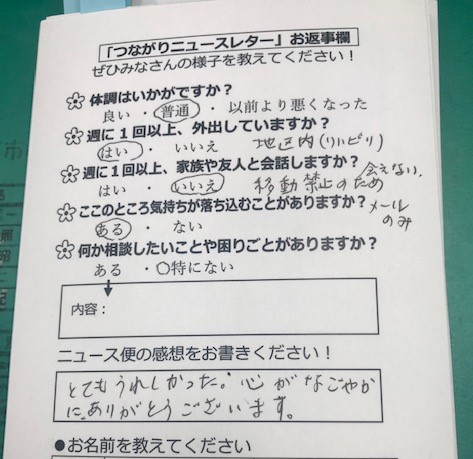 「つながりニュースレター」お返事欄
ぜひみなさんの様子を教えてください！
体調はいかがですか？
良い ・ 普通 ・ 以前より悪くなった
週に１回以上、外出していますか？
はい ・ いいえ 地区内（リハビリ）
週に１回以上、家族や友人と会話しますか？
はい ・ いいえ 移動禁止のため 会えない、
メールのみ
ここのところ気持ちが落ち込むことがありますか？
ある ・ ない
何か相談したいことや困りごとがありますか？
ある ・○特にない
内容：
ニュース便の感想をお書きください！
とてもうれしかった。心がなごやか
に、ありがとうございます。
●お名前を教えてください